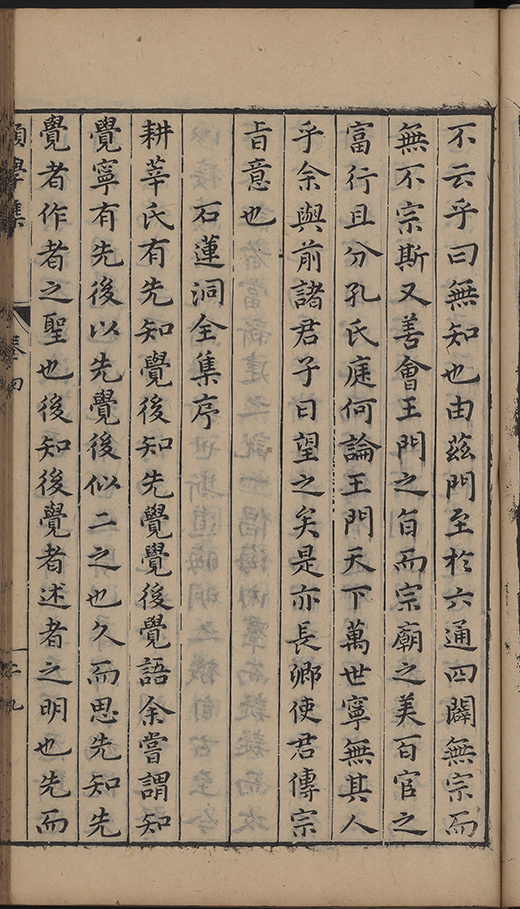 不云乎曰無知也由茲門至於六通四闢無宗而
無不宗斯又善會王門之旨而宗廟之美百官之
富行且分孔氏庭何論王門天下萬世寧無其人
乎余與前諸君子日望之矣是亦長鄉使君傳宗
旨意也
石蓮洞全集序
耕莘氏有先知覺後知先覺覺後覺語余嘗謂知
覺寧有先後以先覺後似二之也久而思先知先
覺者作者之聖也後知後覺者述者之明也先而
願學集 卷四 二九